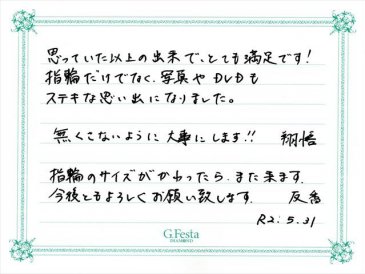 思っていた以上の出来で、とても満足です!
指輪だけでなく、写真や DVDも
ステキな思い出になりました。
無くさないように大事にします!! 翔悟
指輪のサイズがかわったら、また来ます。
今後ともよろしくお願い致します。 友香
R2.5.31
G.Festa
DIAMOND